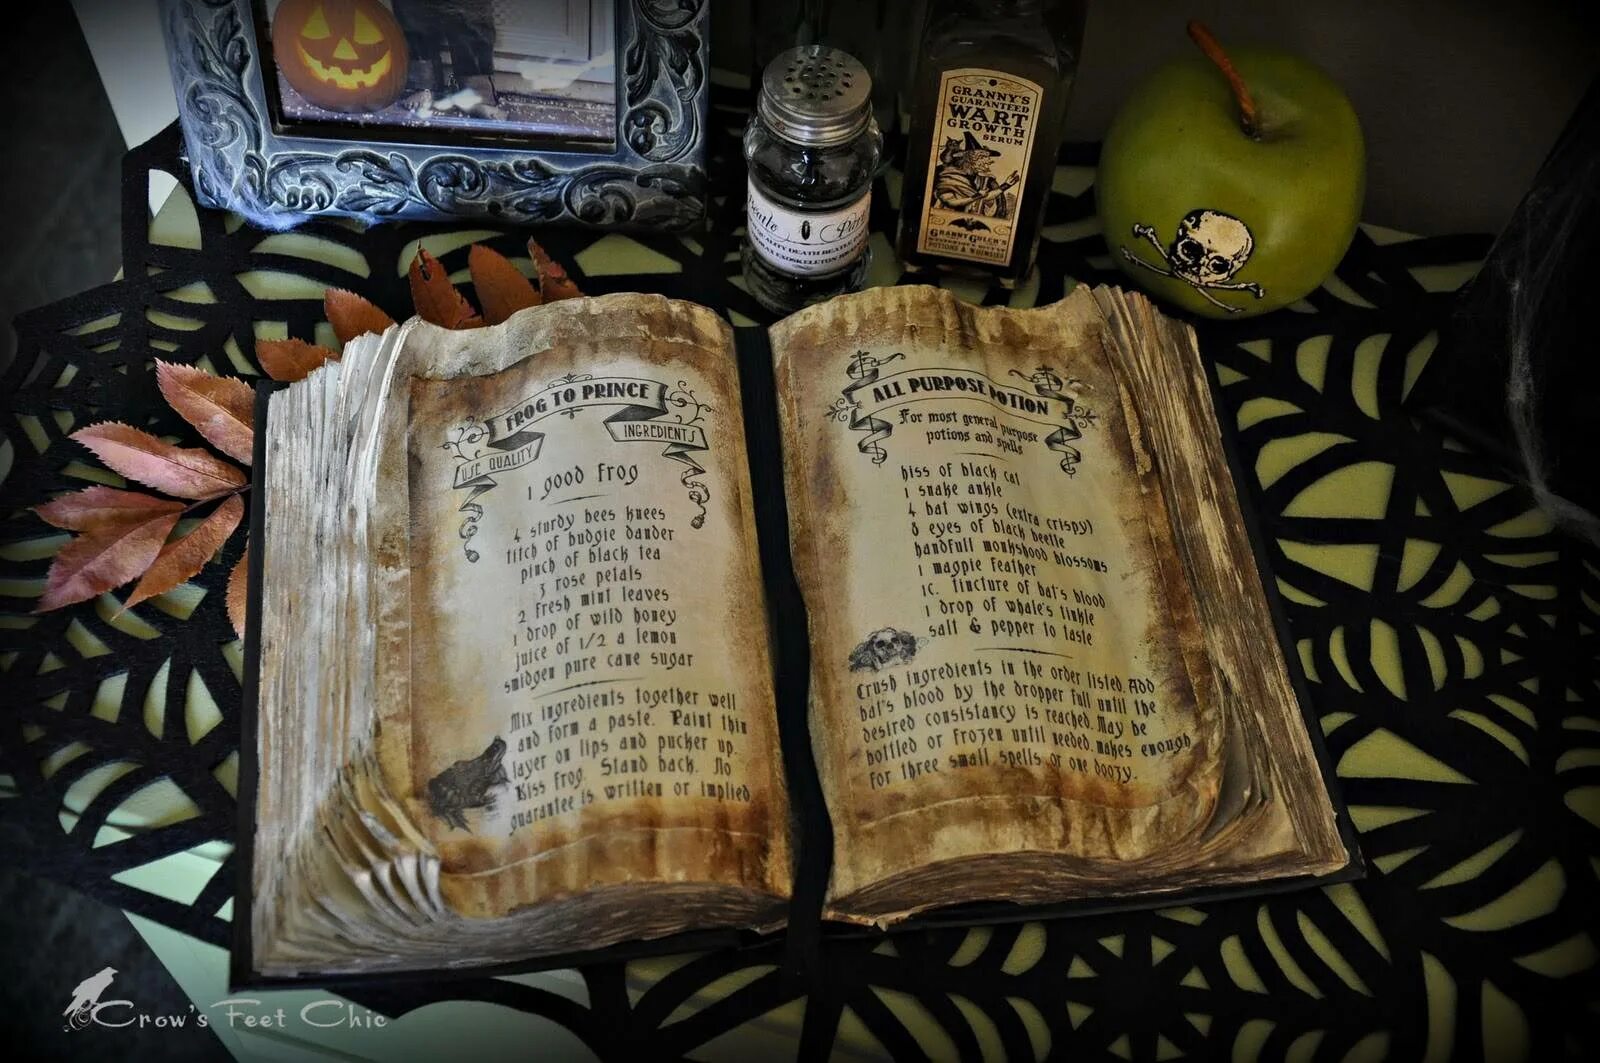 GRANNY'S
GUARANTEED
WART
GROWTH
SERUM
GRANNY GULCH'S
POTIONS & WHIMSIES
FROG TO PRINCE
USE QUALITY INGREDIENTS
1 good frog
4 sturdy bees knees
titch of budgie dander
pinch of black tea
3 rose petals
2 fresh mint leaves
1 drop of wild honey
juice of 1/2 a lemon
smidgen pure cane sugar
Mix ingredients together well
and form a paste. Paint thin
layer on lips and pucker up.
Kiss frog. Stand back. No
guarantee is written or implied
ALL PURPOSE POTION
For most general purpose
potions and spells
hiss of black cat
1 snake ankle
4 bat wings (extra crispy)
8 eyes of black beetle
handfull monkshood blossoms
1 magpie feather
1c. tincture of bat's blood
1 drop of whale's tinkle
salt & pepper to taste
Crush ingredients in the order listed. Add
bat's blood by the dropper full until the
desired consistancy is reached. May be
bottled or frozen until needed. makes enough
for three small spells or one doozy.
Crow's Feet Chic